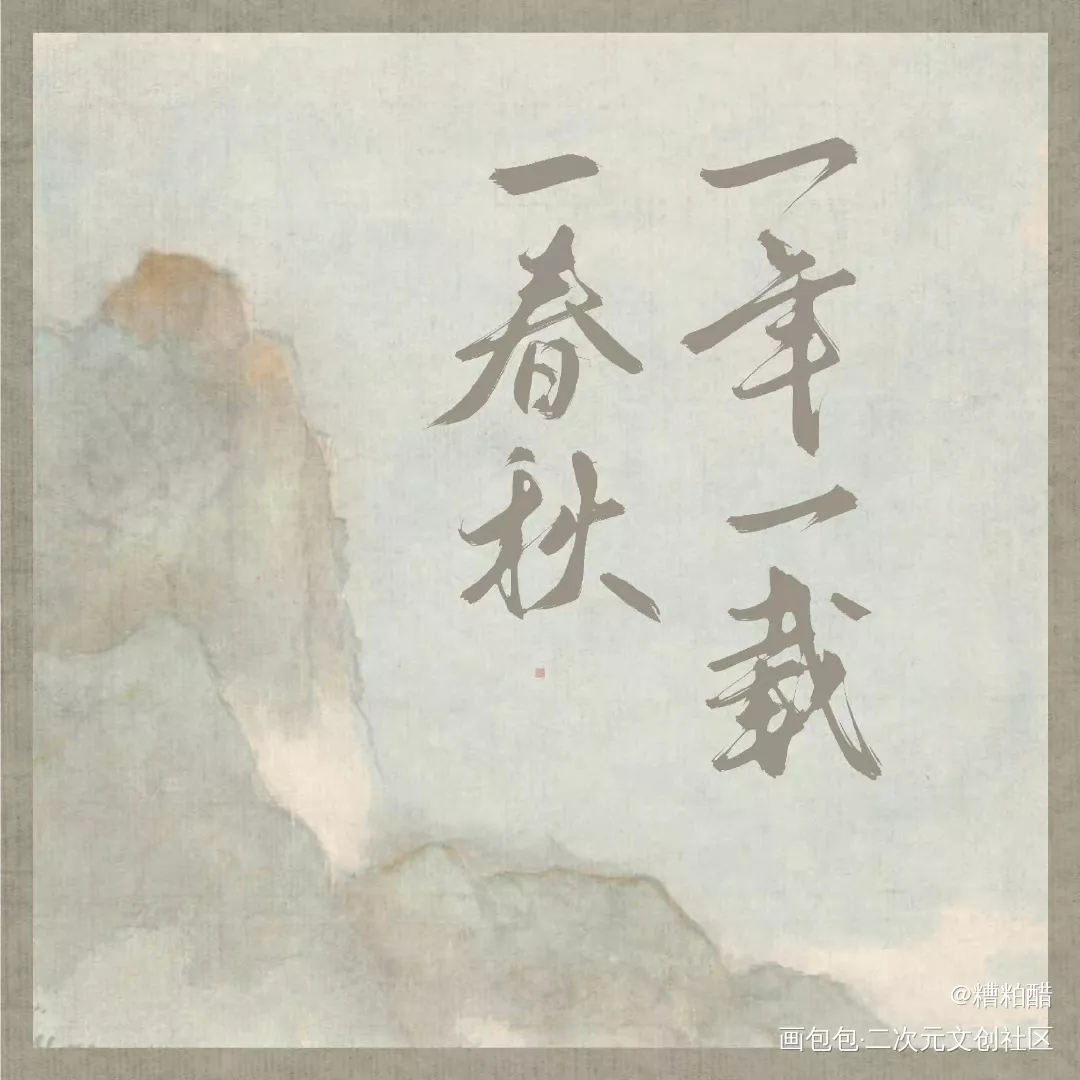 一年一载
一春秋
@糟粕醋
画包包·二次元文创社区